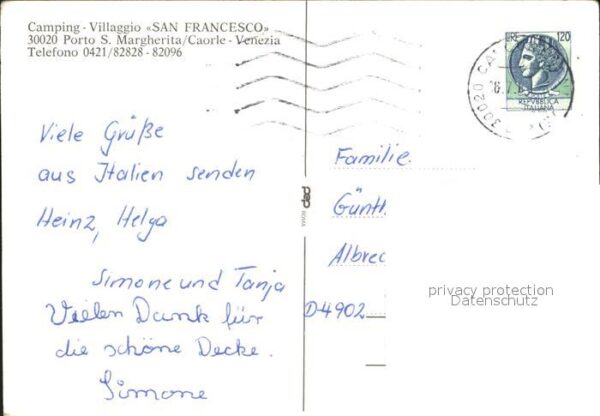 Camping - Villaggio «SAN FRANCESCO»
30020 Porto S. Margherita/Caorle - Venezia
Telefono 0421/82828 - 82096
LIRE 120
REPVBBLICA
ITALIANA
30020 CA
Viele Grüße
aus Italien senden
Heinz, Helga
Simone und Tanja
Vielen Dank für
die schöne Decke.
Simone
pep
ROMA
Familie
Günth
Albrec
D-4902
privacy protection
Datenschutz